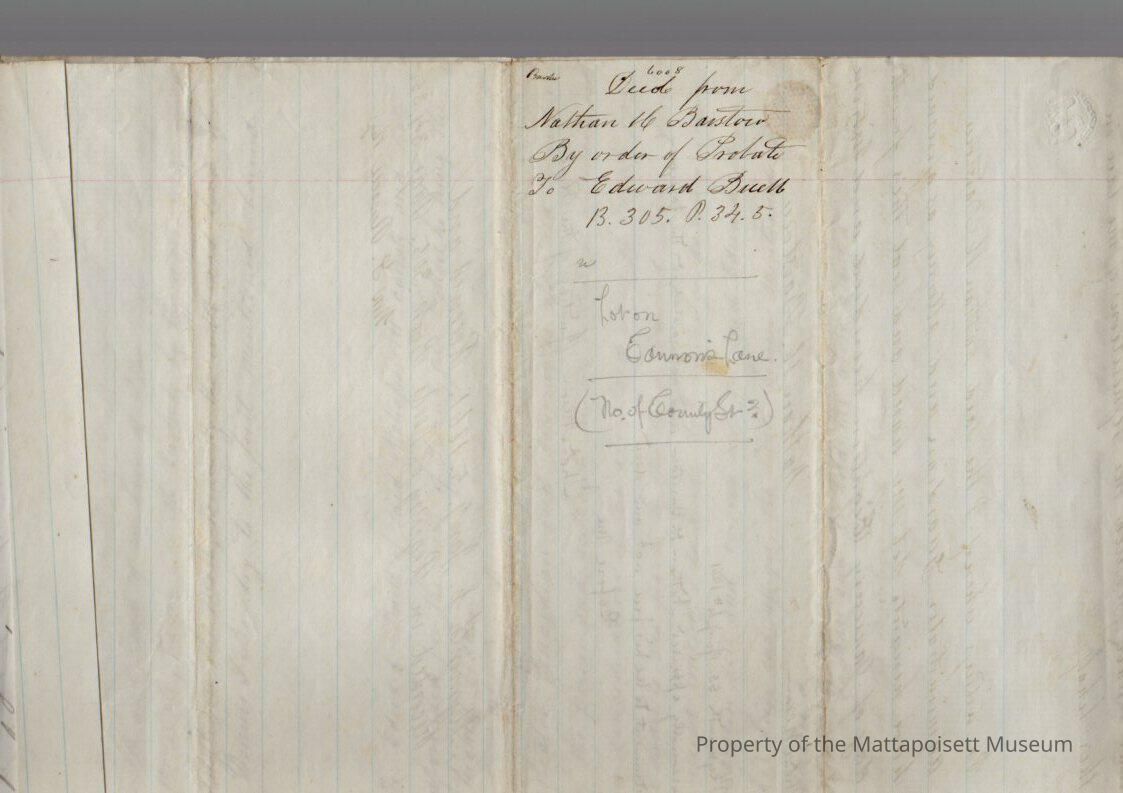 6008
Deed from
Nathan H Barstow
By order of Probate
To Edward Buell
B. 305. P. 34. 5.
Lot on
Cannon's Lane.
(No. of County St?)
Property of the Mattapoisett Museum